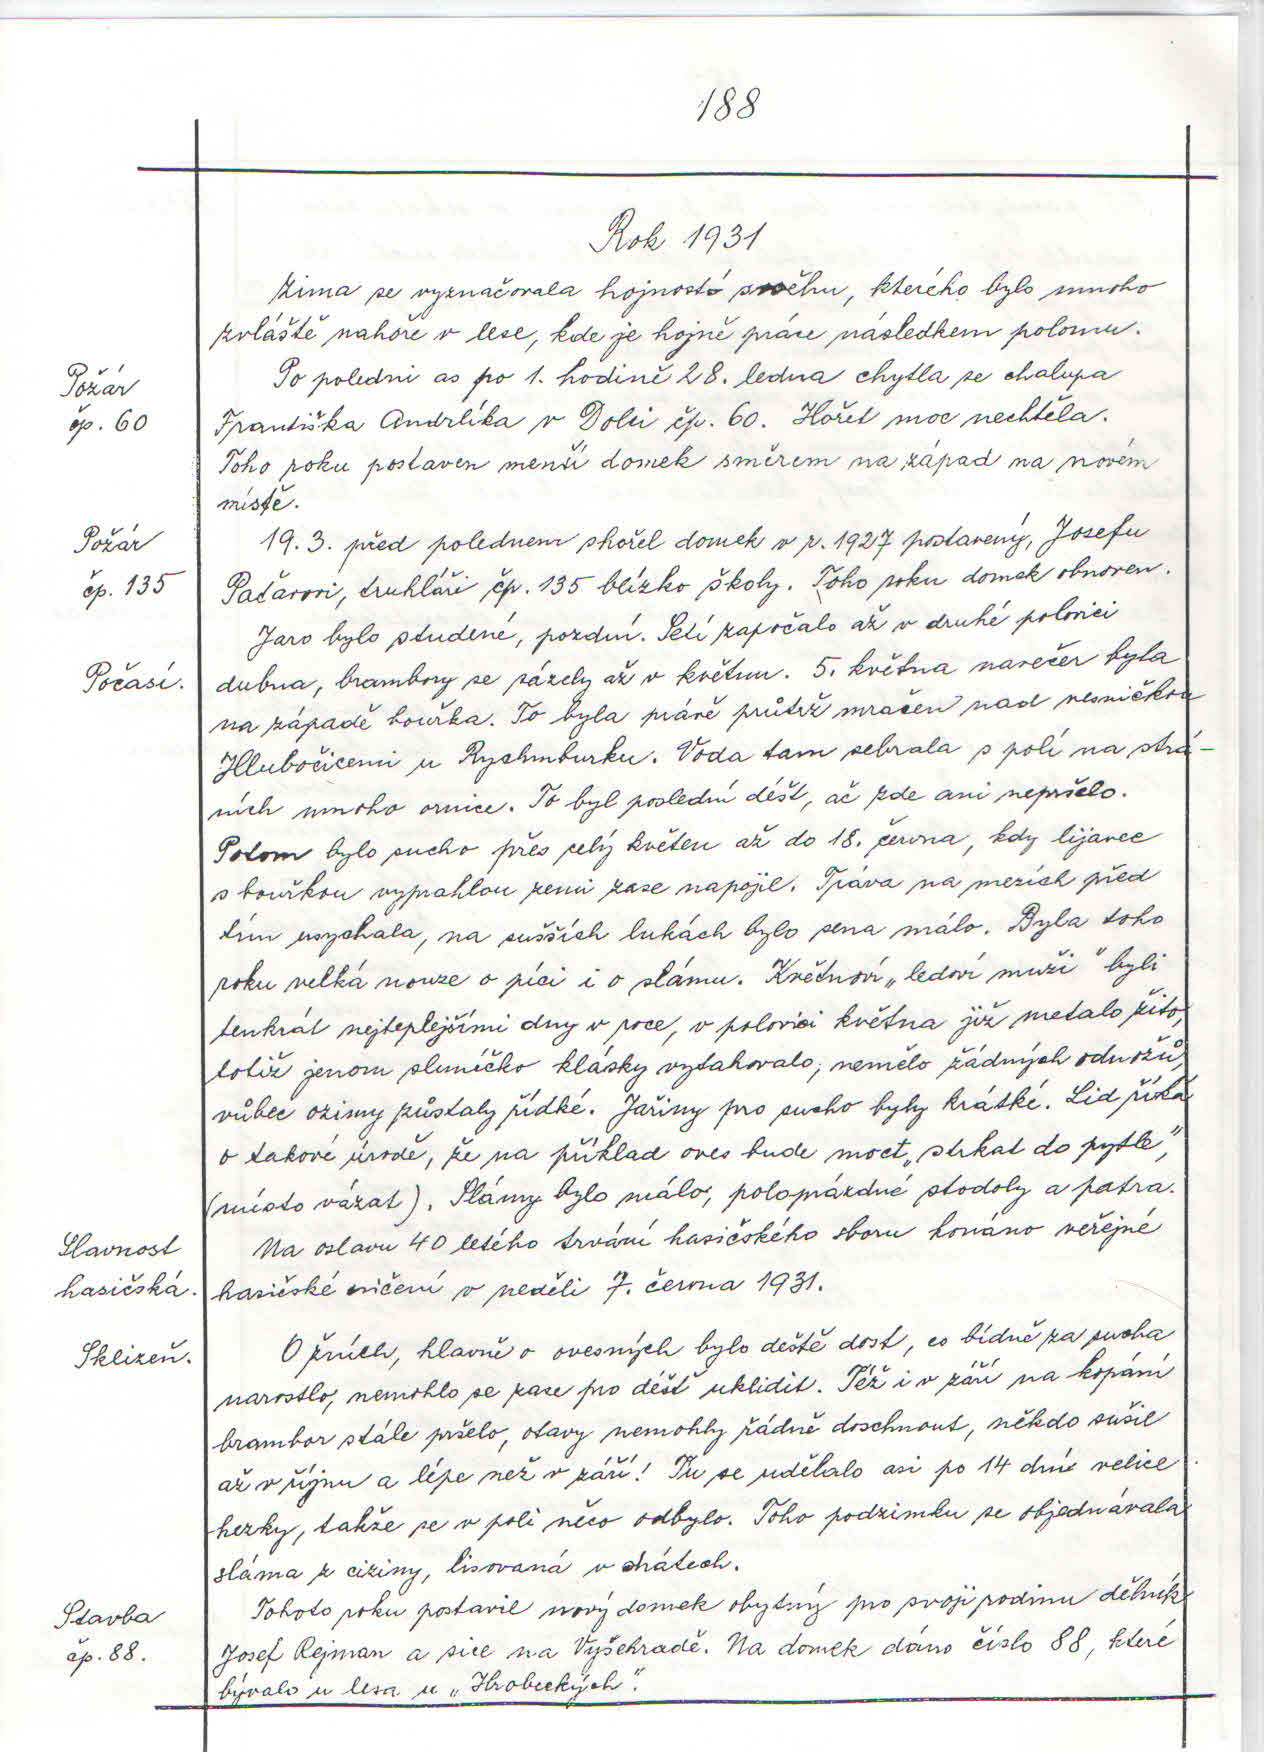 188
Rok 1931
Zima se vyznačovala hojností sněhu, kterého bylo mnoho
zvláště nahoře v lese, kde je hojně práce následkem polomu.
Požár
čp. 60
Po poledni as po 1. hodině 28. ledna chytla se chalupa
Františka Andrlíka v Dolci čp. 60. Hořet moc nechtěla.
Toho roku postaven menší domek směrem na západ na novém
místě.
Požár
čp. 135
19. 3. před polednem shořel domek v r. 1927 postavený, Josefu
Pačarovi, truhláři čp. 135 blízko školy. Toho roku domek obnoven.
Jaro bylo studené, pozdní. Setí započalo až v druhé polovici
Počasí.
dubna, brambory se sázely až v květnu. 5. května navečer byla
na západě bouřka. To byla právě průtrž mračen nad vesničkou
Hlubočicemi u Rychmburku. Voda tam sebrala s polí na strá-
ních mnoho ornice. To byl poslední déšt, ač zde ani nepršelo.
Potom bylo sucho přes celý květen až do 18. června, kdy lijavec
s bouřkou vyprahlou zemi zase napojil. Tráva na mezích před
tím usychala, na sušších lukách bylo sena málo. Byla toho
roku velká nouze o píci i o slámu. Květnoví „ledoví muži" byli
tenkrát nejteplejšími dny v roce, v polovici května již metalo žito,
totiž jenom sluníčko klásky vytahovalo, nemělo žádných odnožů,
vůbec ozimy zůstaly řídké. Jařiny pro sucho byly krátké. Lid říká
o takové úrodě, že na příklad oves bude moct „strkat do pytle",
(místo vázat). Slámy bylo málo, poloprázdné stodoly a patra.
Slavnost
hasičská.
Na oslavu 40 letého trvání hasičského sboru konáno veřejné
hasičské cvičení v neděli 7. června 1931.
Sklizeň.
O žních, hlavně o ovesných bylo deště dost, co bídně za sucha
narostlo, nemohlo se zase pro déšť uklidit. Též i v září na kopání
brambor stále pršelo, otavy nemohly řádně doschnout, někdo sušil
až v říjnu a lépe než v září! Tu se udělalo asi po 14 dní velice
hezky, takže se v poli něco odbylo. Toho podzimku se objednávala
sláma z ciziny, lisovaná v drátech.
Stavba
čp. 88.
Tohoto roku postavil nový domek obytný pro svoji rodinu dělník
Josef Rejman a sice na Vyšehradě. Na domek dáno číslo 88, které
bývalo u lesa u „Hrobeckých".